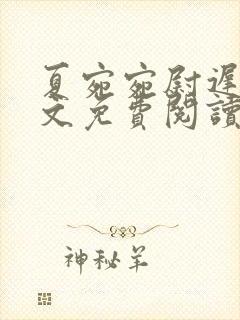 夏宛宛尉遲
文免費閱讀
神秘羊